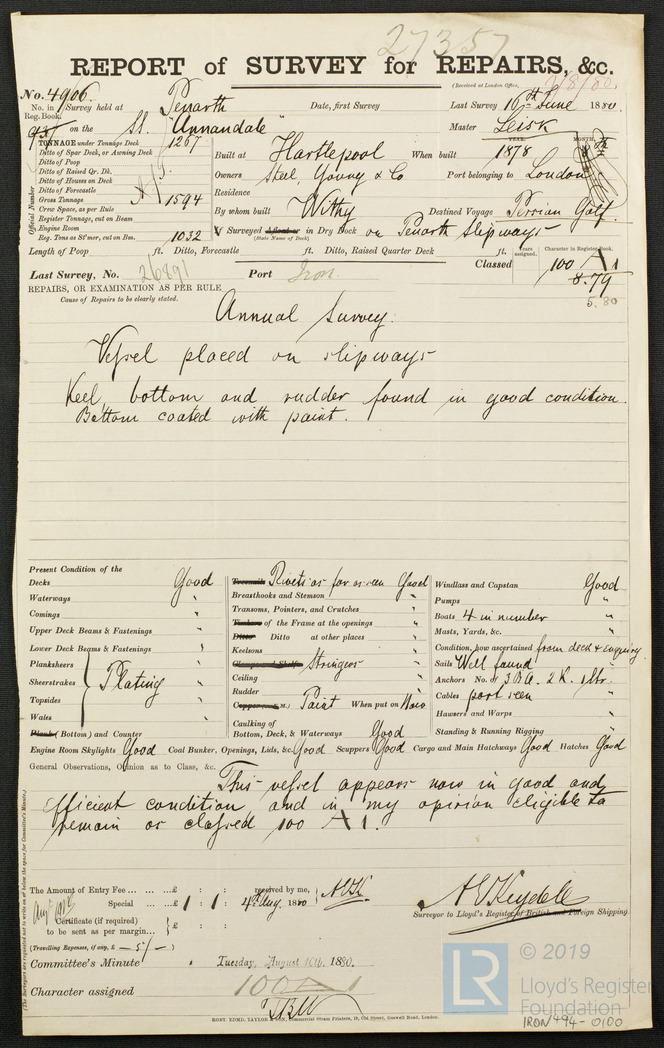 27357
REPORT of SURVEY for REPAIRS, &c.
(Received at London Office, 9/8/80.
No. 4906.
No. in Reg. Book. Survey held at Penarth Date, first Survey Last Survey 16th June 1880.
937 on the St. "Annandale" Master Leisk
TONNAGE under Tonnage Deck 1267
Ditto of Spar Deck, or Awning Deck
Ditto of Poop
Ditto of Raised Qr. Dk.
Ditto of Houses on Deck
Ditto of Forecastle
Gross Tonnage 1594
Crew Space, as per Rule
Register Tonnage, cut on Beam
Engine Room
Reg. Tons as St'mer, cut on Bm. 1032
Official Number
Built at Hartlepool When built YEAR. 1878 MONTH.
Owners Steel, Young & Co Port belonging to London
Residence
By whom built Withy Destined Voyage Persian Golf.
If Surveyed Afloat or in Dry Dock on Penarth Slipways
(State Name of Dock)
Length of Poop ft. Ditto, Forecastle ft. Ditto, Raised Quarter Deck ft.
Classed Years assigned. Character in Register Book.
100 A 1
8.79
5.80
Last Survey, No. 26891 Port Iron.
REPAIRS, OR EXAMINATION AS PER RULE
Cause of Repairs to be clearly stated.
Annual Survey.
Vessel placed on slipways
Keel, bottom and rudder found in good condition.
Bottom coated with paint.
Present Condition of the
Decks Good
Waterways "
Comings "
Upper Deck Beams & Fastenings "
Lower Deck Beams & Fastenings "
Planksheers
Sheerstrakes
Topsides
Wales
Plating "
Planks (Bottom) and Counter "
Treenails Rivets as far as seen Good
Breasthooks and Stemson "
Transoms, Pointers, and Crutches "
Timbers of the Frame at the openings "
Ditto Ditto at other places "
Keelsons "
Clamps and Shelfs Stringers "
Ceiling "
Rudder "
Copper (or Y.M.) Paint When put on Now
Caulking of
Bottom, Deck, & Waterways Good
Windlass and Capstan Good
Pumps "
Boats 4 in number "
Masts, Yards, &c. "
Condition, how ascertained from deck & inquiry
Sails Well found
Anchors No. of 3 B A. 2 K. 1 Str.
Cables part seen "
Hawsers and Warps "
Standing & Running Rigging "
Engine Room Skylights Good Coal Bunker, Openings, Lids, &c. Good Scuppers Good Cargo and Main Hatchways Good Hatches Good
General Observations, Opinion as to Class, &c.
This vessel appears now in good and
efficient condition and in my opinion eligible to
remain as classed 100 A 1.
(The Surveyors are requested not to write on or below the space for Committee's Minute.)
The Amount of Entry Fee ... ... ... £ : : received by me,
Special ... ... £ 1 : 1 : 4th Aug 1880
Certificate (if required)
to be sent as per margin... } £ : :
(Travelling Expenses, if any, £ — 5/ — )
Surveyor to Lloyd's Register of British and Foreign Shipping.
Committee's Minute Tuesday, August 10th, 1880.
Character assigned 100 A 1
ROBT. EDMD. TAYLOR & SON, Commercial Steam Printers, 19, Old Street, Goswell Road, London.
LR
© 2019
Lloyd's Register
Foundation
IRON 494-0100